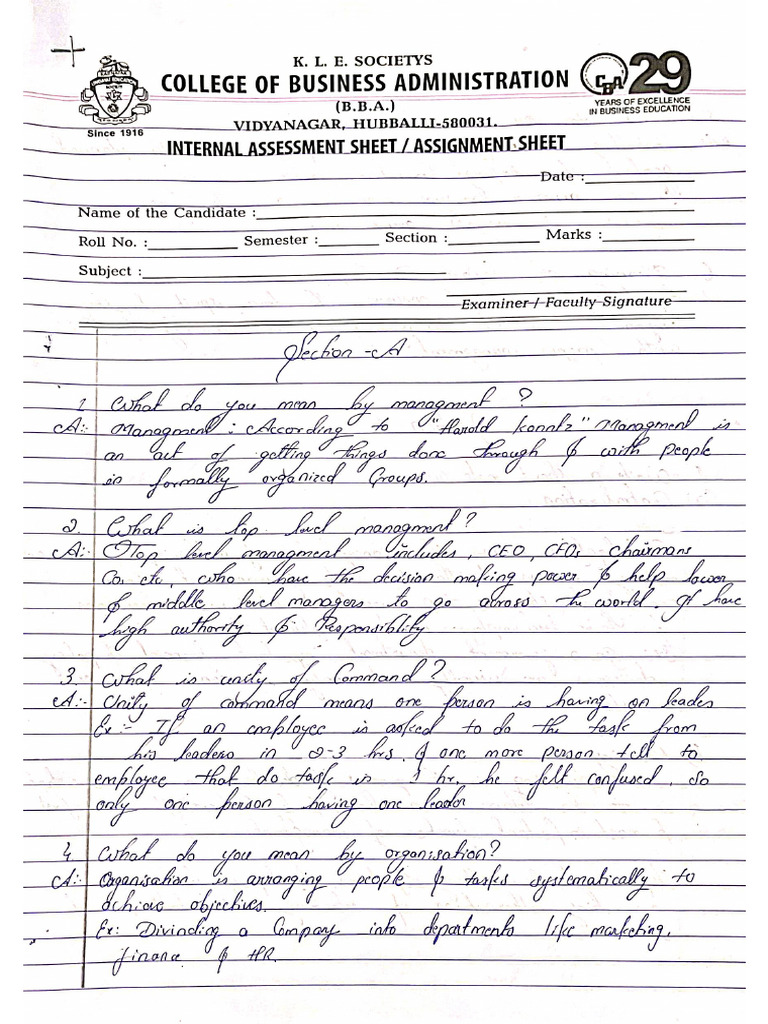 K. L. E. SOCIETYS
COLLEGE OF BUSINESS ADMINISTRATION
CBA 29
(B.B.A.)
YEARS OF EXCELLENCE
IN BUSINESS EDUCATION
Since 1916
VIDYANAGAR, HUBBALLI-580031.
INTERNAL ASSESSMENT SHEET / ASSIGNMENT SHEET
Date :
Name of the Candidate :
Roll No. : Semester : Section : Marks :
Subject :
Examiner / Faculty Signature
Section - A
1. What do you mean by managment ?
A:- Managment : According to "Harold Koontz" Managment is
an act of getting things done through & with people
in formally organized Groups.
2. What is top level managment?
A:- Top level managment includes, CEO, CFOs chairmans
Co. etc, who have the decision making power & help lower
& middle level managers to go across the world. It have
high authority & Responsiblity
3. What is unity of Command?
A:- Unity of command means one person is having on leader
Ex:- If an employee is asked to do the task from
his leaders in 2-3 hrs. & one more person tell to
employee that do task in 1 hr. he felt confused. So
only one person having one leader
4. What do you mean by organisation?
A:- Organisation is arranging people & tasks systematically to
achieve objectives.
Ex: Divinding a Company into departments like marketing,
finance & HR.